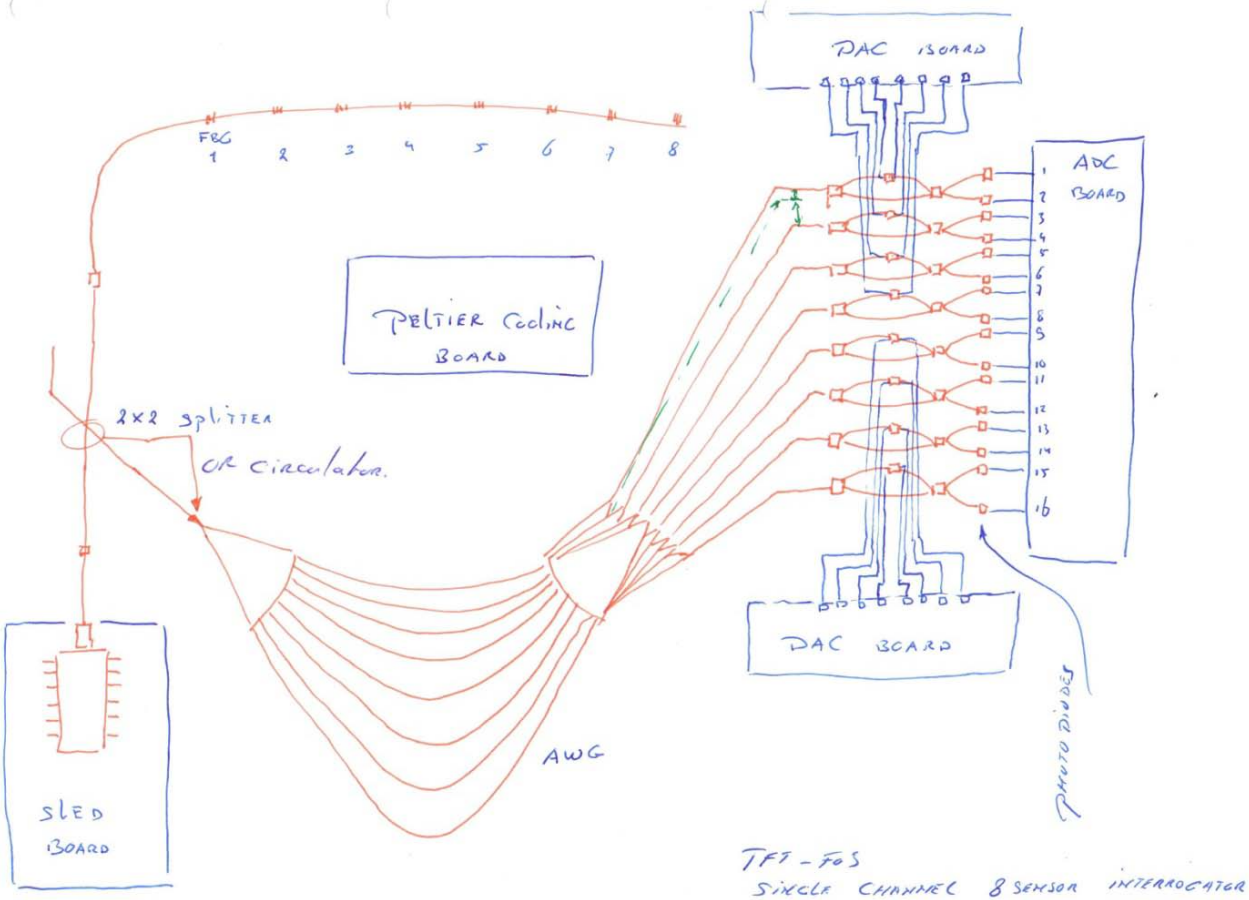 DAC BOARD
FBG
1 2 3 4 5 6 7 8
ADC
BOARD
1
2
3
4
5
6
7
8
9
10
11
12
13
14
15
16
PELTIER COOLING
BOARD
2x2 SPLITTER
OR CIRCULATOR.
AWG
SLED
BOARD
DAC BOARD
PHOTO DIODES
TFT-FOS
SINGLE CHANNEL 8 SENSOR INTERROGATOR